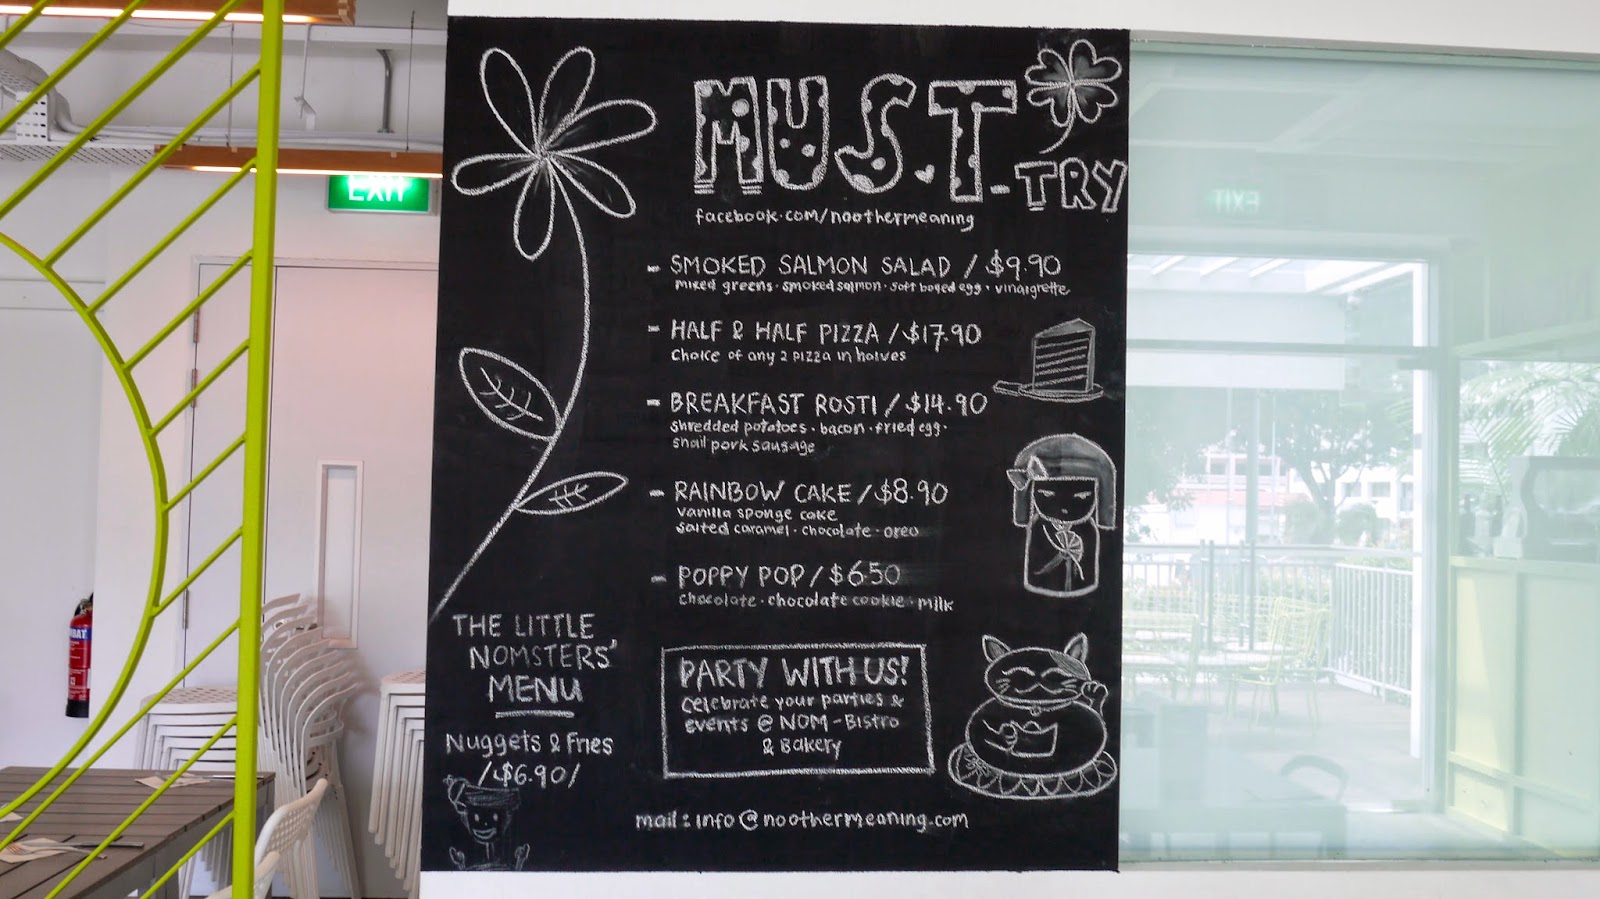 EXIT
MUS.T-TRY
facebook.com/noothermeaning
- SMOKED SALMON SALAD / $9.90
mixed greens · smoked salmon · soft boiled egg · vinaigrette
- HALF & HALF PIZZA / $17.90
Choice of any 2 pizza in halves
- BREAKFAST ROSTI / $14.90
shredded potatoes · bacon · fried egg ·
snail pork sausage
- RAINBOW CAKE / $8.90
vanilla sponge cake
salted caramel · chocolate · oreo
- POPPY POP / $6.50
chocolate · chocolate cookie · milk
THE LITTLE
NOMSTERS'
MENU
Nuggets & Fries
/$6.90/
PARTY WITH US!
Celebrate your parties &
events @ NOM - Bistro
& Bakery
mail : info@noothermeaning.com
EXIT